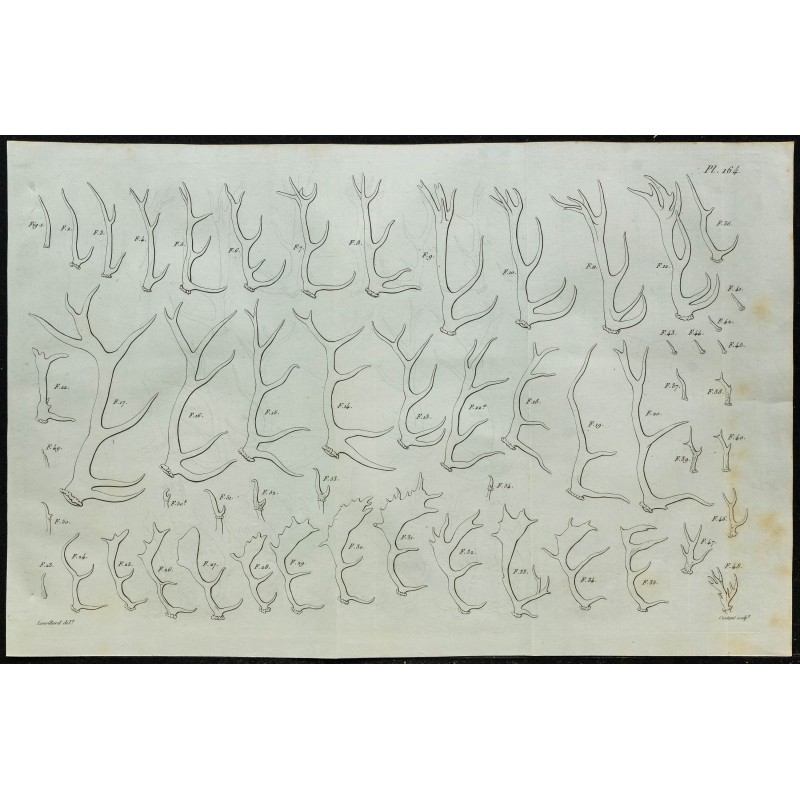 Pl. 164.
Fig. 1.
F. 2.
F. 3.
F. 4.
F. 5.
F. 6.
F. 7.
F. 8.
F. 9.
F. 10.
F. 11.
F. 12.
F. 36.
F. 41.
F. 42.
F. 43.
F. 44.
F. 45.
F. 22.
F. 17.
F. 16.
F. 14.
F. 13.
F. 18.
F. 19.
F. 20.
F. 37.
F. 38.
F. 39.
F. 40.
F. 49.
F. 50.
F. 52.
F. 53.
F. 54.
F. 46.
F. 47.
F. 48.
F. 23.
F. 24.
F. 25.
F. 26.
F. 27.
F. 28.
F. 29.
F. 30.
F. 31.
F. 32.
F. 33.
F. 34.
F. 35.
Laurillard del.t
Coutant sculp.t